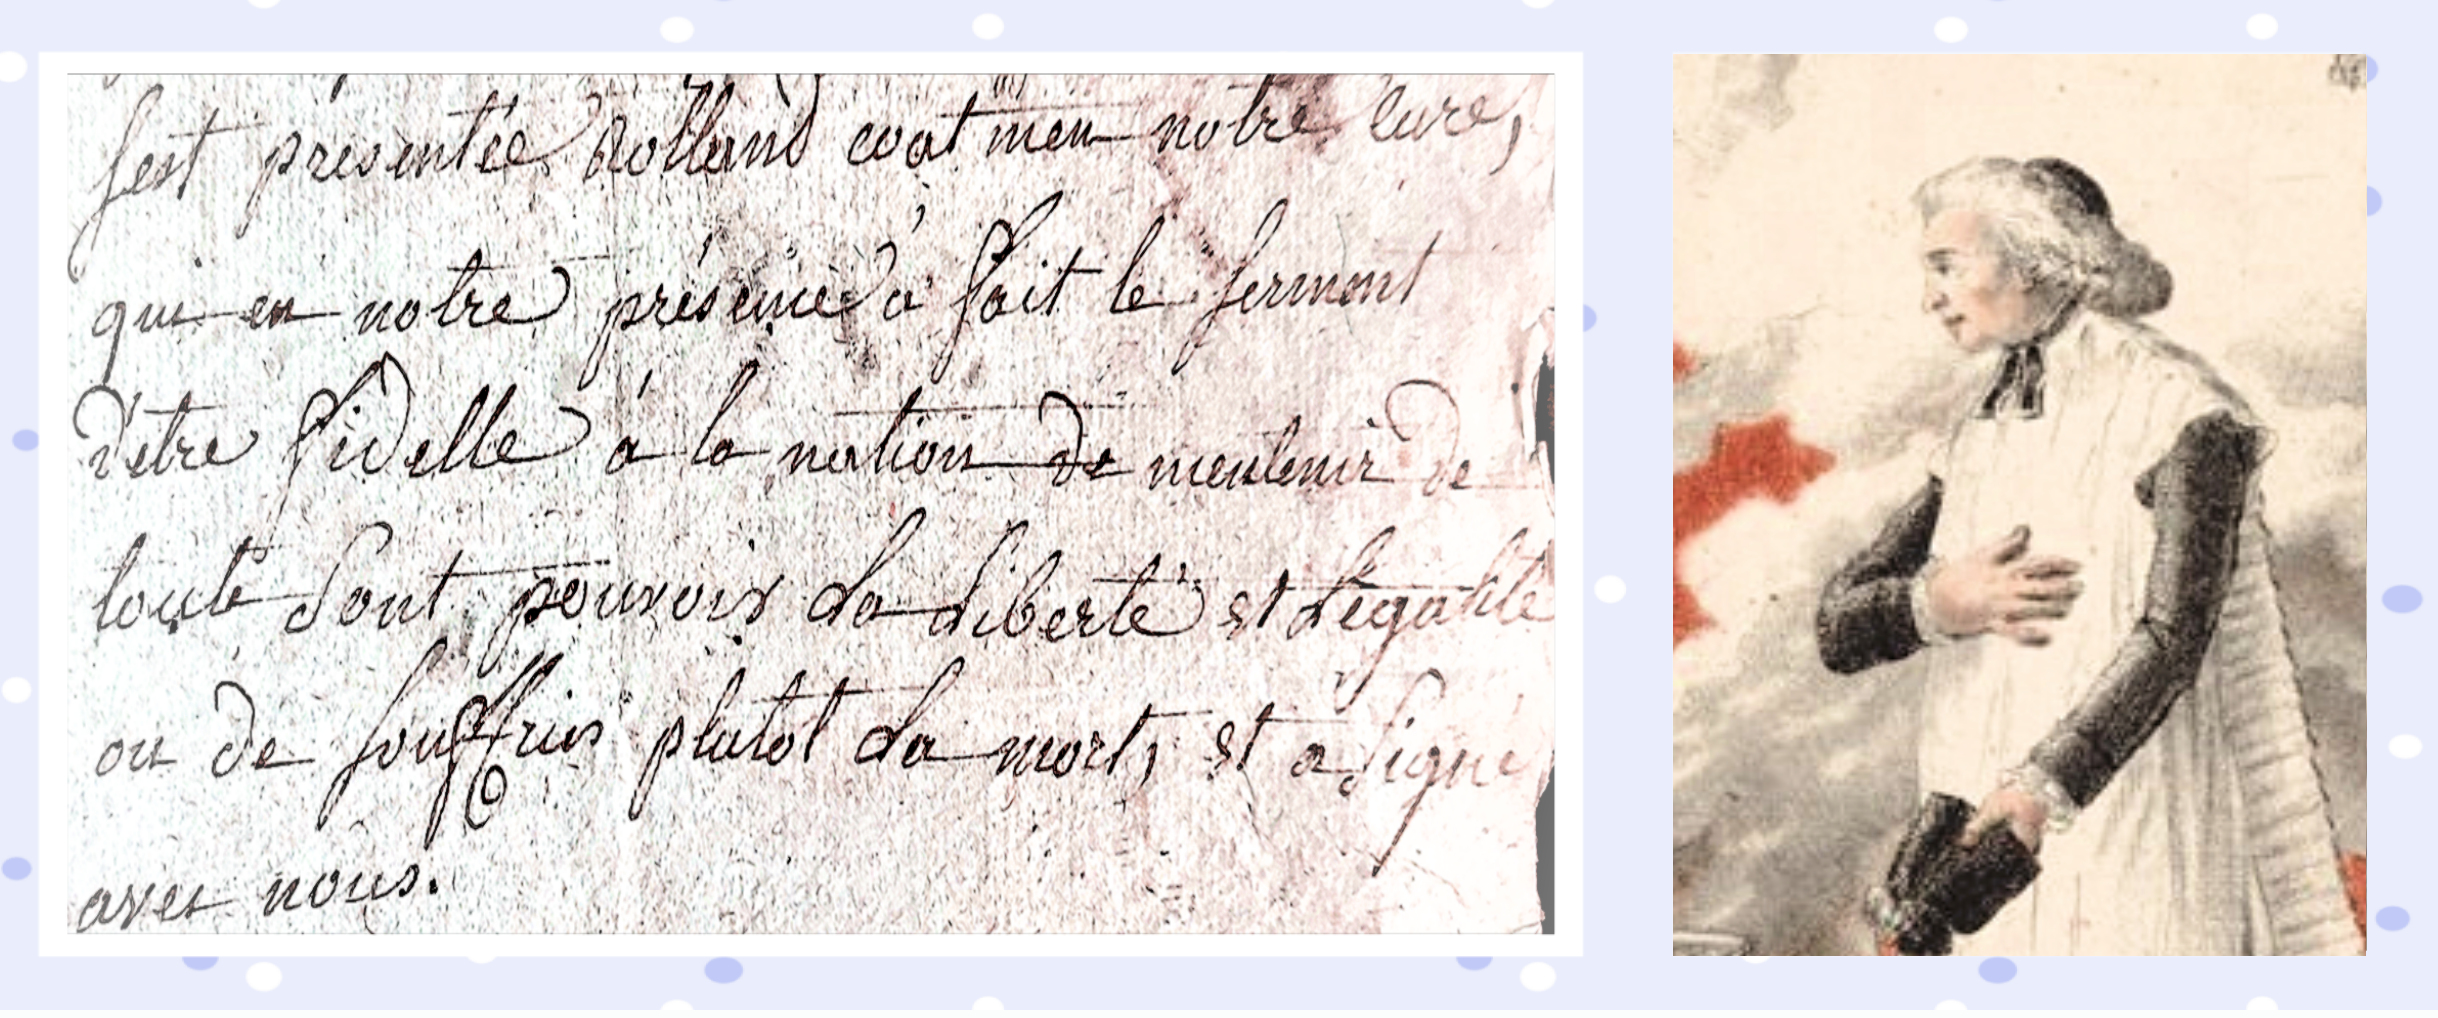 sest présentée Rolland coatmen notre cure,
qui en notre présence a fait le serment
d'etre fidelle à la nation de mentenir de
toute sont pouvoir La Liberté et Légallte
ou de souffrir plutot La mort, et a signe
avec nous.